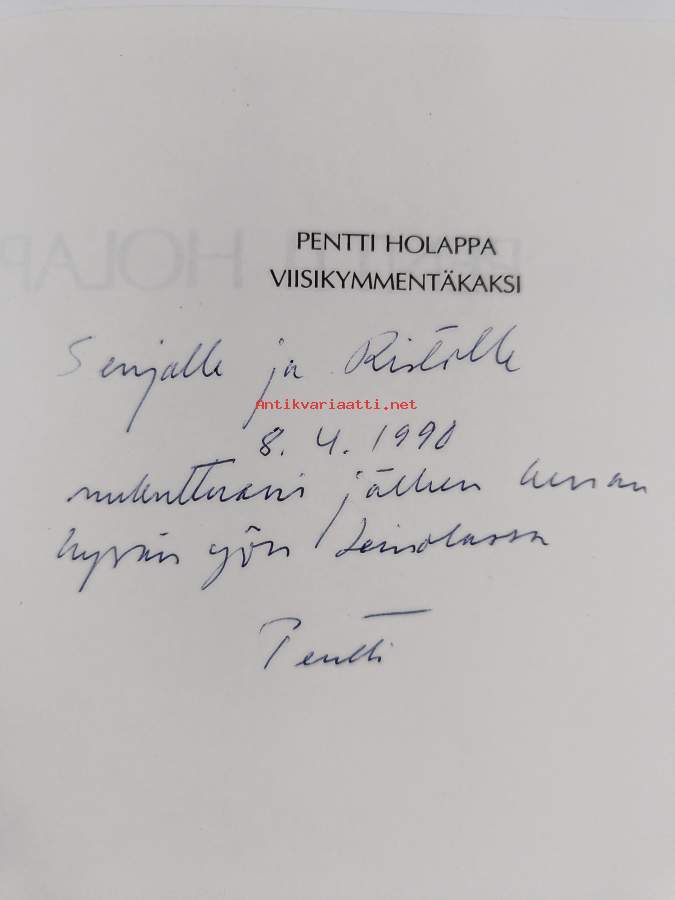 PENTTI HOLAPPA
VIISIKYMMENTÄKAKSI
Seijalle ja Ristolle
Antikvariaatti.net
8.4.1990
nukuttuani jälleen kerran
hyvän yön
Pentti